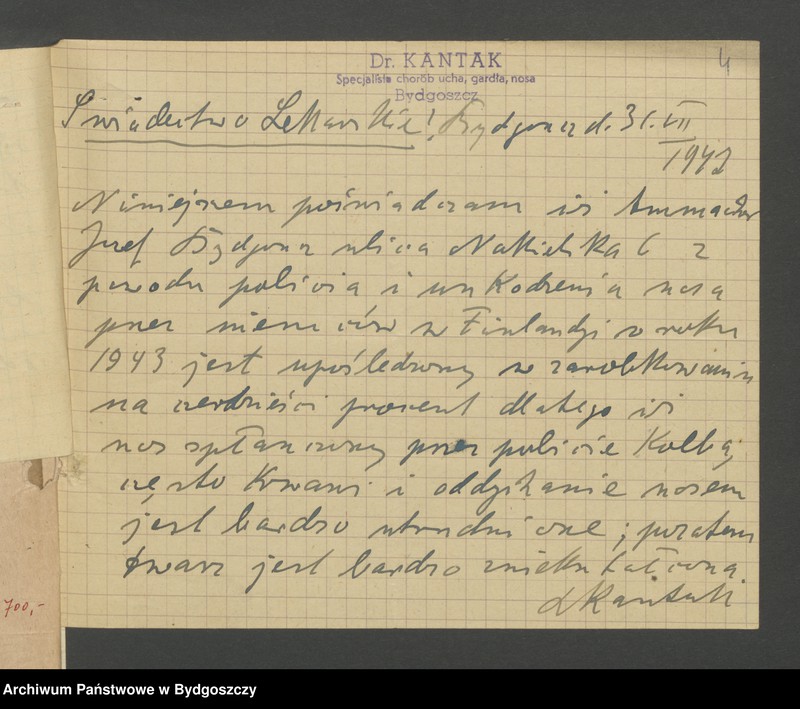 4
Dr. KANTAK
Specjalista chorób ucha, gardła, nosa
Bydgoszcz
Świadectwo Lekarskie! Bydgoszcz d. 31.VII
1947
Niniejszem poświadczam iż
Józef Bydgoszcz ulica Nakielska 6 z
powodu pobicia i uszkodzenia nosa
przez niemców w Finlandji w roku
1943 jest upośledzony w zarobkowaniu
na czerdzieści procent dlatego iż
nos spłaszczony przez pobicie Kolbą,
często Krwawi i oddychanie nosem
jest bardzo utrudnione; pozatem
twarz jest bardzo zniekształcona.
Kantak
700,-
Archiwum Państwowe w Bydgoszczy